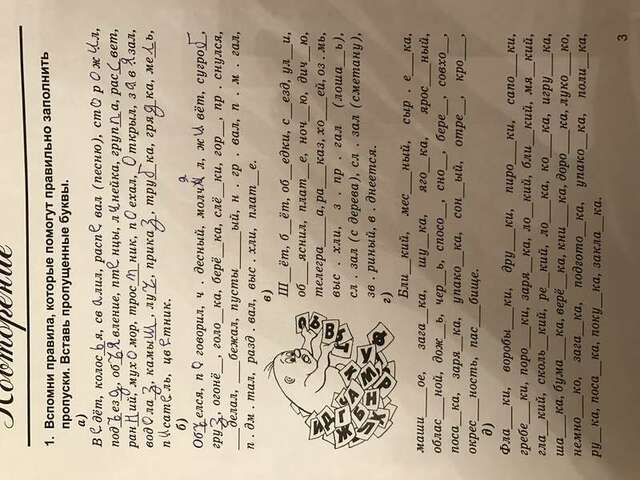 Повторение
1. Вспомни правила, которые помогут правильно заполнить
пропуски. Вставь пропущенные буквы.
а)
Въедёт, колосья, свалил, распевал (песню), сторожил,
подъезд, объявление, птенцы, линейка, группа, рассвет,
ранний, мухомор, тростник, поехал, открыл, завязал,
водолаз, камыш, луч, приказ, трубка, грядка, мель,
писатель, цветник.
б)
Объелся, поговорил, ч . десный, молчал, живёт, сугроб,
груз, огонё_, голо_ка, берё_ка, слё_ки, гор_, пр . снулся,
_делал, _бежал, пусты_ый, н . гр . вал, п . м . гал,
п . дм . тал, разд . вал, выс . хли, плат_е.
в)
Ш_ёт, б_ёт, об_едки, с_езд, ул_и,
об_яснил, плат_е, ноч_ю, дич_ю,
телегра_а, ра_каз, хо_ей, оз . мь,
выс . хли, з . пр . гал (лоша_ь),
сл . зал (с дерева), сл . зал (сметану),
зв . риный, в . днеется.
г)
Бли_кий, мес_ный, сыр . е_ка,
маши_ое, зага_ка, шу_ка, яго_ка, ярос_ный,
облас_ной, дож_ь, чер_ь, способ_, сно_, бере_, совхо_,
поса_ка, заря_ка, упако_ка, сон_ый, отре_, кро_,
окрес_ность, пас_бище.
д)
Фла_ки, воробы_ки, дру_ки, пиро_ки, сапо_ки,
гребе_ки, поро_ки, заря_ка, ло_кий, бли_кий, мя_кий,
гла_кий, сколь_кий, ре_кий, ло_ка, ко_ка, игру_ка,
ша_ка, бума_ка, верё_ка, кни_ка, доро_ка, луко_ко,
немно_ко, зага_ка, подгото_ка, упако_ка, поли_ка,
ру_ка, поса_ка, поку_ка, закла_ка.
3